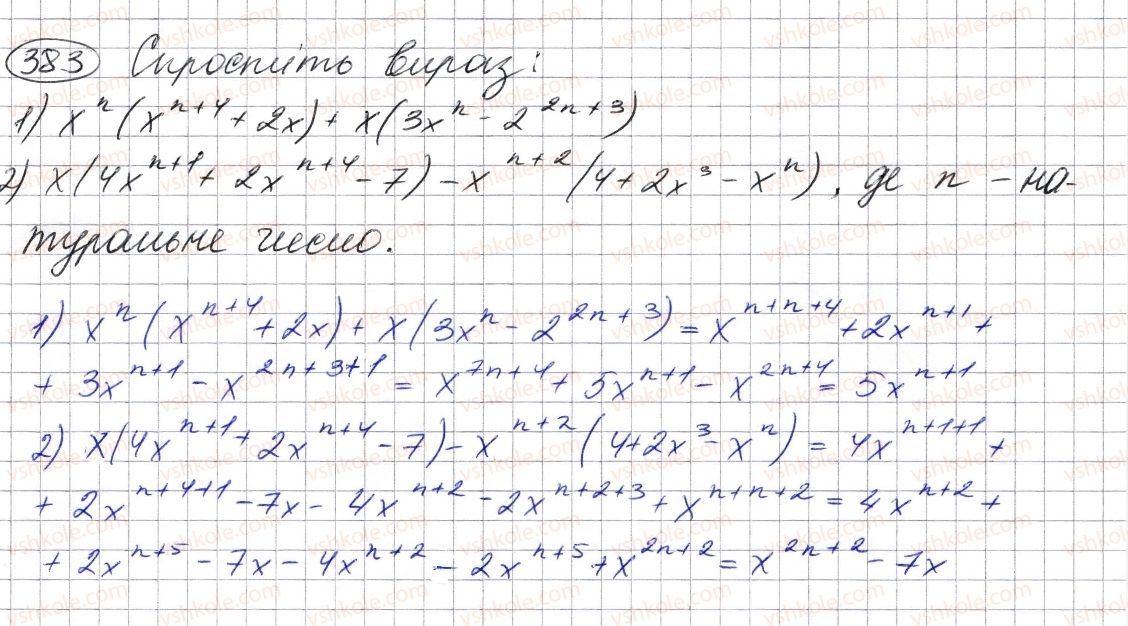 383 Спростіть вираз:
1) xⁿ(xⁿ⁺⁴ + 2x) + x(3xⁿ - 2²ⁿ⁺³)
2) x(4xⁿ⁺¹ + 2xⁿ⁺⁴ - 7) - xⁿ⁺²(4 + 2x³ - xⁿ), де n - на-
туральне число.
1) xⁿ(xⁿ⁺⁴ + 2x) + x(3xⁿ - 2²ⁿ⁺³) = xⁿ⁺ⁿ⁺⁴ + 2xⁿ⁺¹ +
+ 3xⁿ⁺¹ - x²ⁿ⁺³⁺¹ = x⁷ⁿ⁺⁴ + 5xⁿ⁺¹ - x²ⁿ⁺⁴ = 5xⁿ⁺¹
2) x(4xⁿ⁺¹ + 2xⁿ⁺⁴ - 7) - xⁿ⁺²(4 + 2x³ - xⁿ) = 4xⁿ⁺¹⁺¹ +
+ 2xⁿ⁺⁴⁺¹ - 7x - 4xⁿ⁺² - 2xⁿ⁺²⁺³ + xⁿ⁺ⁿ⁺² = 4xⁿ⁺² +
+ 2xⁿ⁺⁵ - 7x - 4xⁿ⁺² - 2xⁿ⁺⁵ + x²ⁿ⁺² = x²ⁿ⁺² - 7x